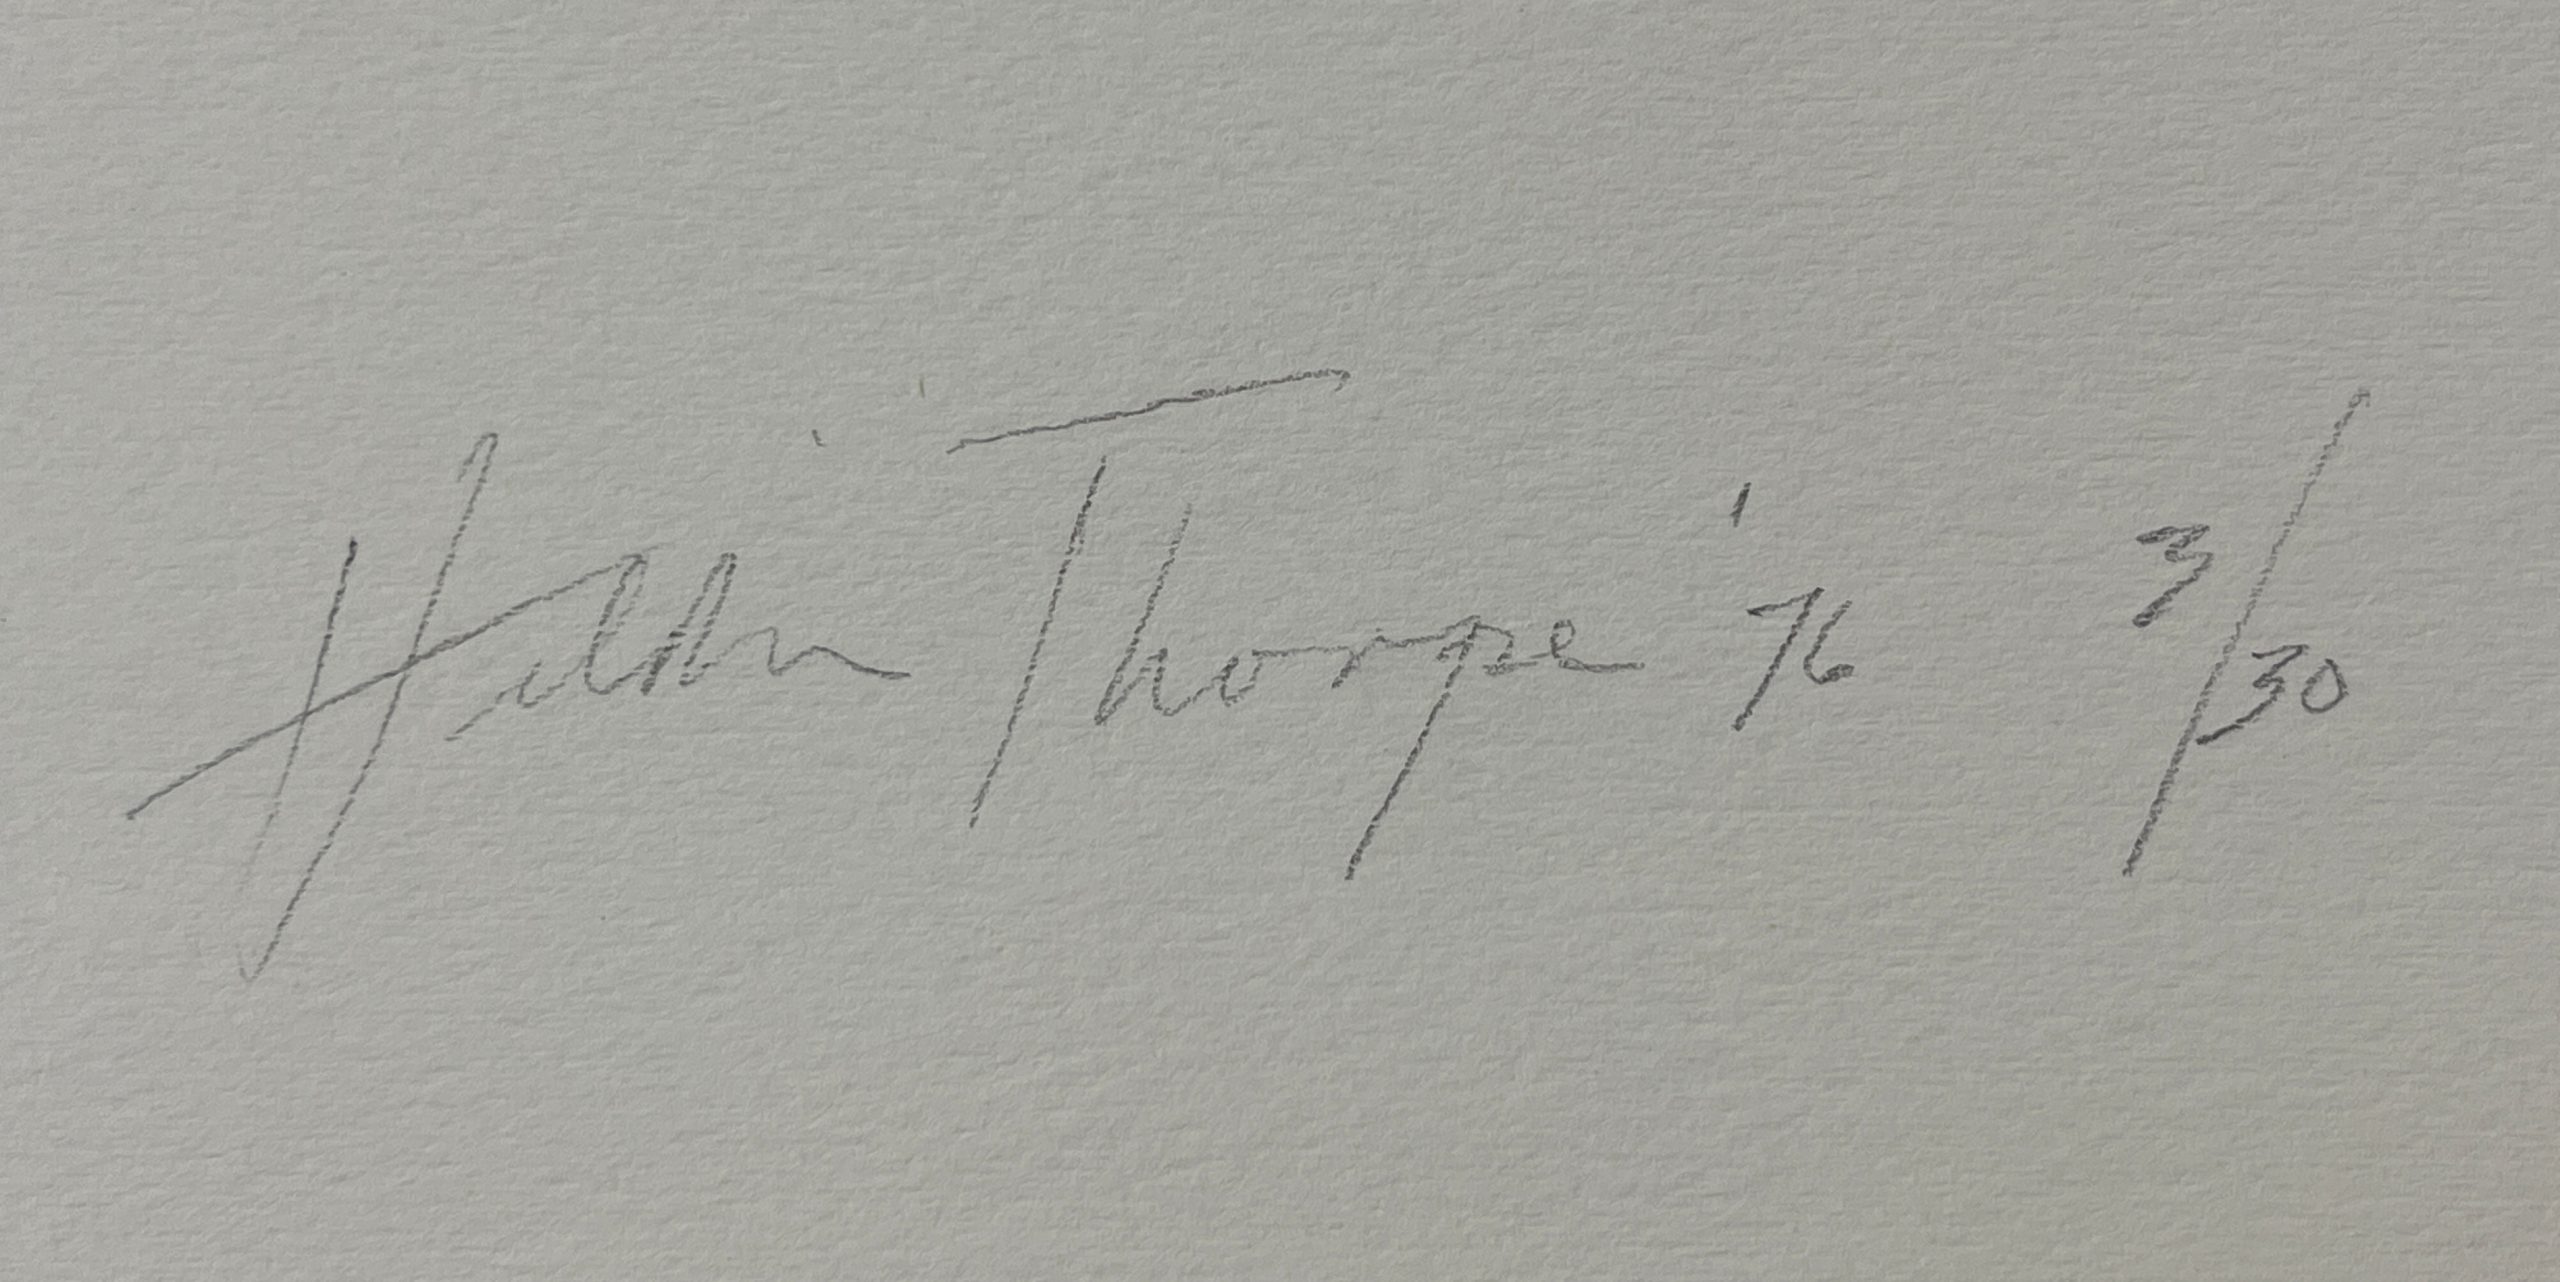 Hilda Thorpe '76 3/30